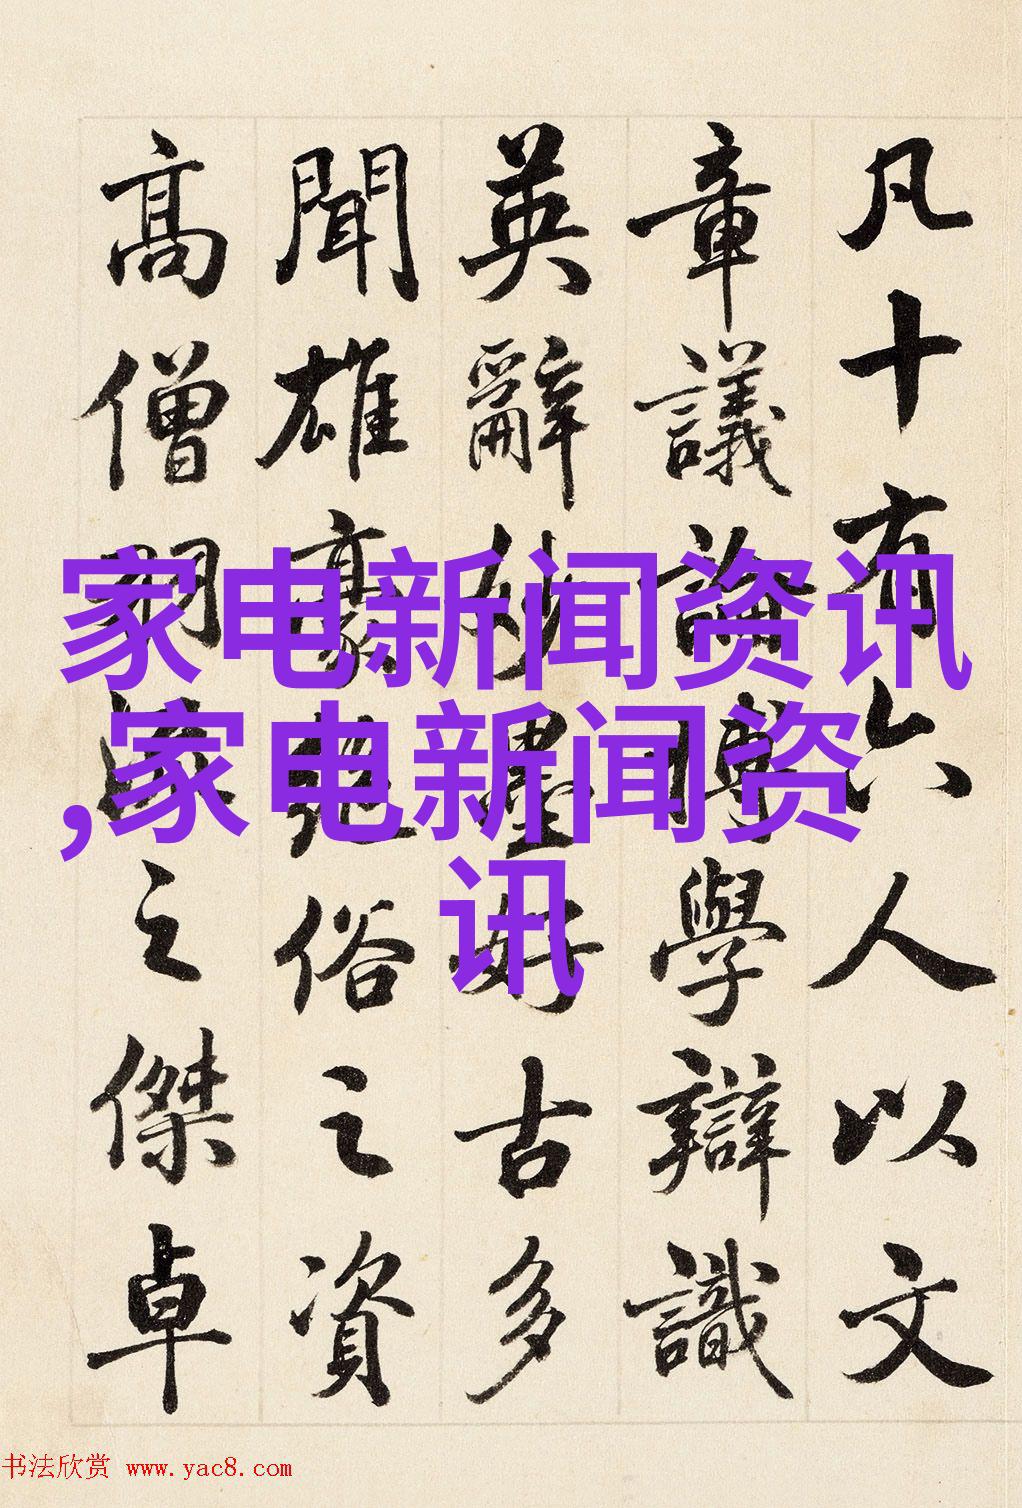 凡十有六人以文
章議論博學辯識
英辭妙墨好古多
聞雄豪絕俗之資
高僧羽流之傑卓
家电新闻资讯
,家电新闻资
讯
书法欣赏 www.yac8.com